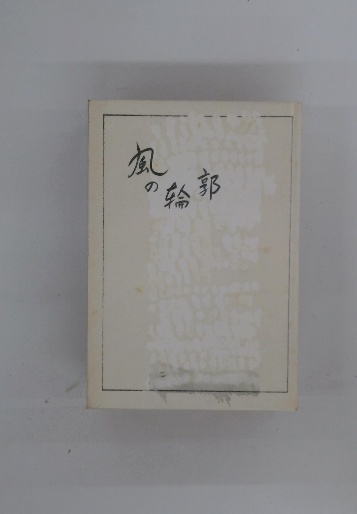 風の輪郭